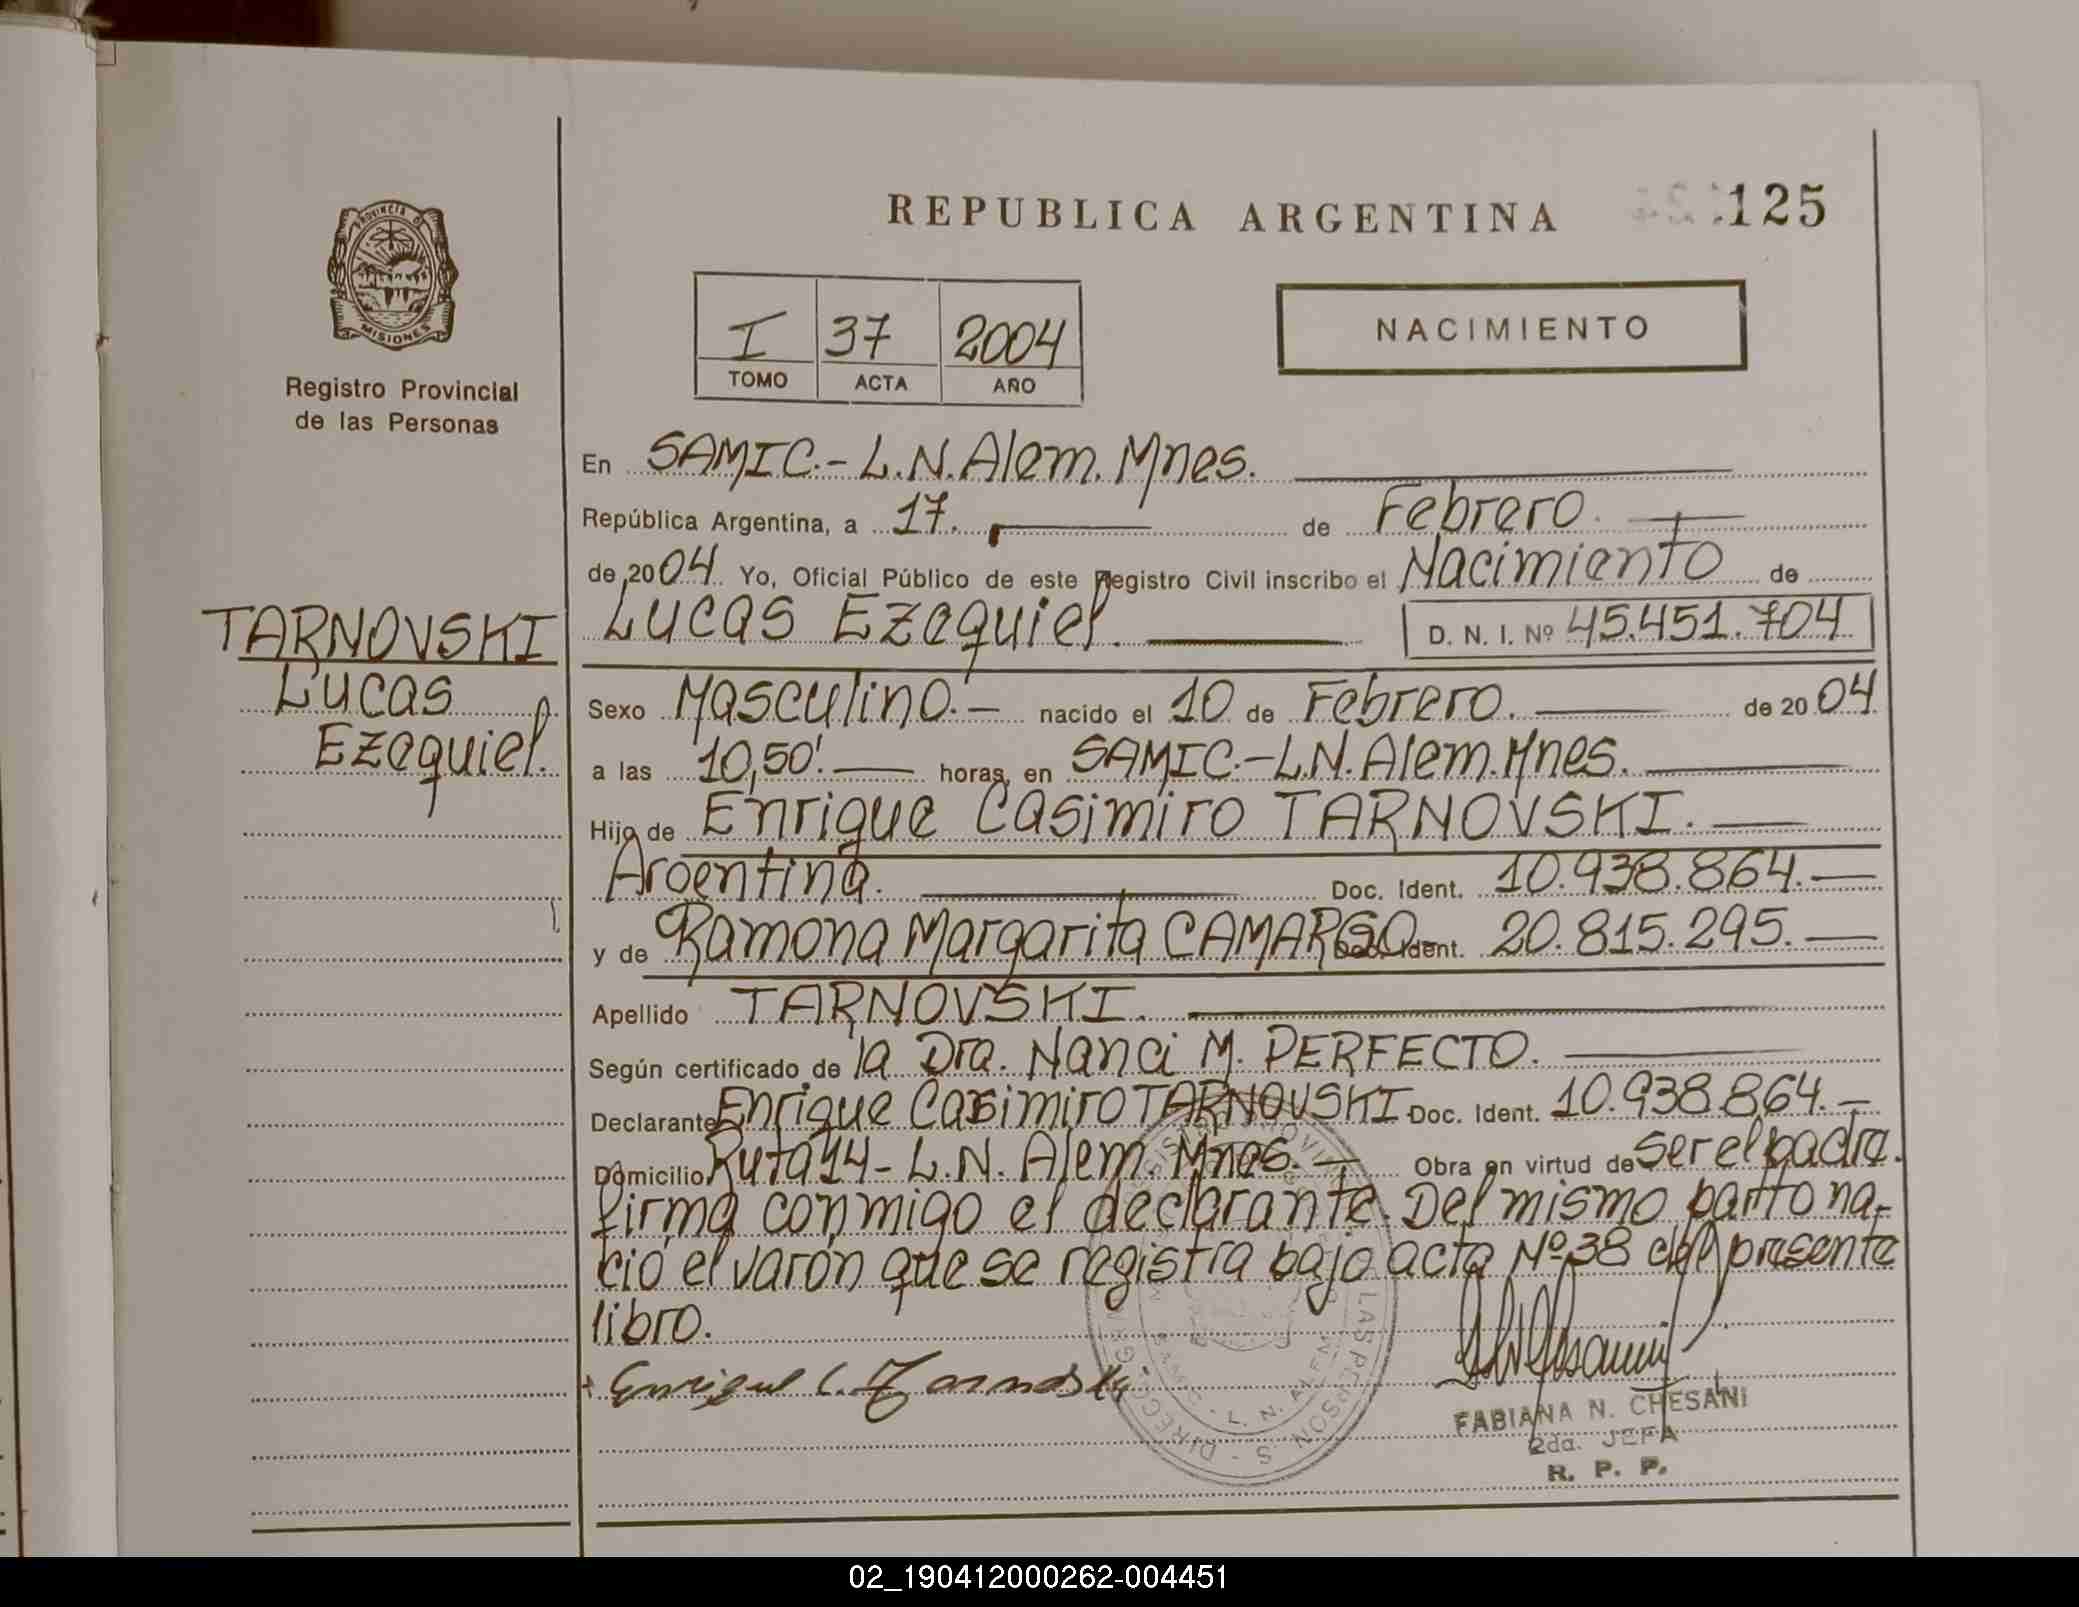 REPUBLICA ARGENTINA
125
PROVINCIA DE
MISIONES
Registro Provincial
de las Personas
I 37 2004
TOMO ACTA AÑO
NACIMIENTO
En SAMIC.- L.N. Alem. Mnes.
República Argentina, a 17. de Febrero.
de 2004 Yo, Oficial Público de este Registro Civil inscribo el Nacimiento de
Lucas Ezequiel. D. N. I. Nº 45.451.704
TARNOVSKI
Lucas
Ezequiel.
Sexo Masculino.- nacido el 10 de Febrero. de 2004
a las 10,50'. horas, en SAMIC.-L.N. Alem. Mnes.
Hijo de Enrique Casimiro TARNOVSKI.
Argentina. Doc. Ident. 10.938.864.-
y de Ramona Margarita CAMARGO- Doc. Ident. 20.815.295.-
Apellido TARNOVSKI.
Según certificado de la Dra. Nanci M. PERFECTO.
Declarante Enrique Casimiro TARNOVSKI Doc. Ident. 10.938.864.-
Domicilio Ruta 14- L.N. Alem. Mnes.- Obra en virtud de ser el padre.
firma conmigo el declarante. Del mismo parto na-
ció el varón que se registra bajo acta Nº 38 del presente
libro.
Enrique C. Tarnovski
L. N. ALEM
FABIANA N. CHESANI
2da. JEFA
R. P. P.
02_190412000262-004451